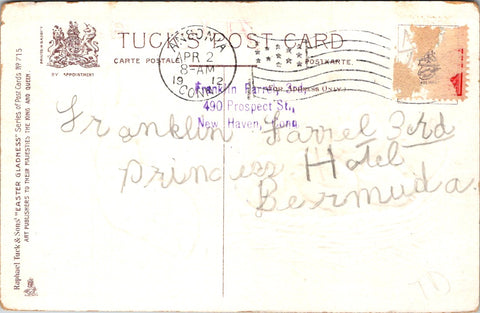 TUCK'S POST CARD
CARTE POSTALE
POSTKARTE.
BY APPOINTMENT
ANSONIA
APR 2
8-AM
1912
CONN.
For Address Only
Franklin Farrel, 3rd,
490 Prospect St.,
New Haven, Conn.
Franklin Farrel 3rd
Princess Hotel
Bermuda.
Raphael Tuck & Sons' "EASTER GLADNESS" Series of Post Cards No 715
ART PUBLISHERS TO THEIR MAJESTIES THE KING AND QUEEN.